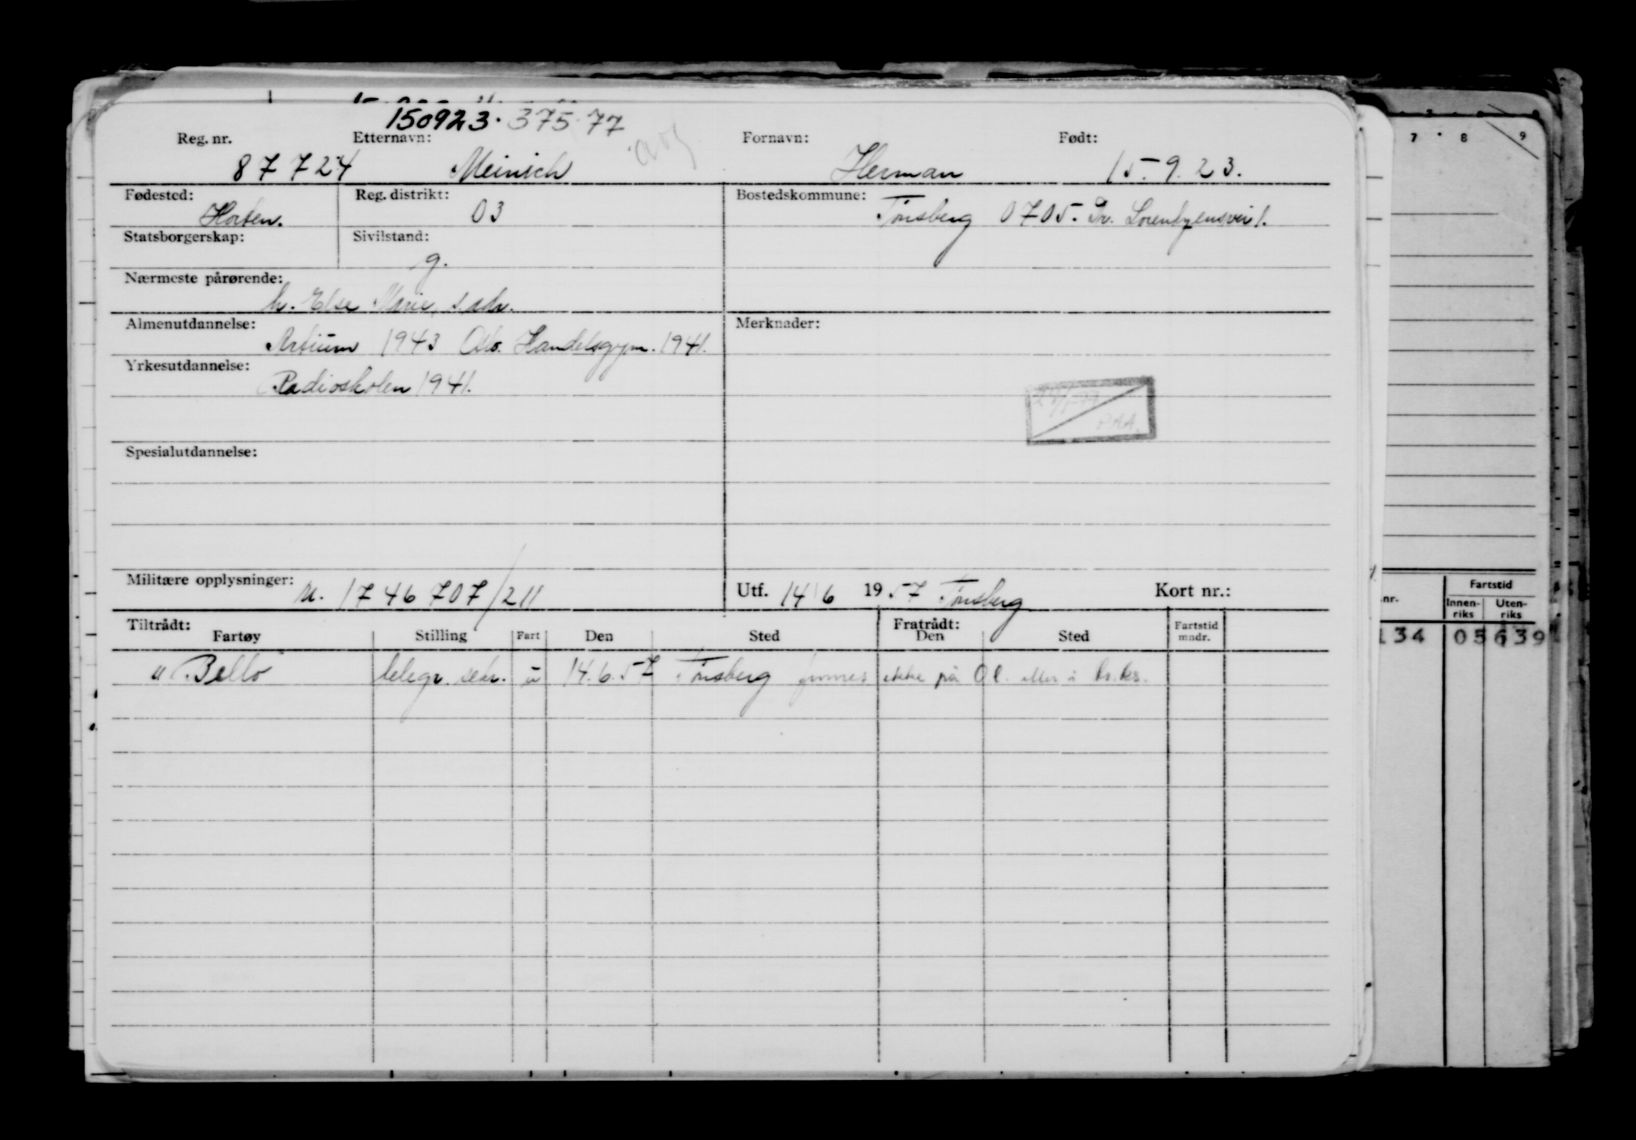 150923. 375 77
Reg. nr. Etternavn: Fornavn: Født:
87724 Meinich Herman 15-9.23.
Fødested: Reg. distrikt: Bostedskommune:
Horten. 03 Tønsberg 0705. Dr. Lorentzensvei 1.
Statsborgerskap: Sivilstand:
g.
Nærmeste pårørende:
h. Else Marie, s. adr.
Almenutdannelse: Merknader:
Artium 1943 Oslo Handelsgym. 1941.
Yrkesutdannelse:
Radioskolen 1941.
P.A.A.
Spesialutdannelse:
Militære opplysninger: M. 1746707/211 Utf. 14/6 1957 Tønsberg Kort nr.:
Tiltrådt: Fratrådt:
Fartøy Stilling Fart Den Sted Den Sted Fartstid mndr.
"Bello" telegr. u 14.6.57 Tønsberg finnes ikke på Ol. eller i
7 8 9
nr. Fartstid
Innenriks Utenriks
134 05 639